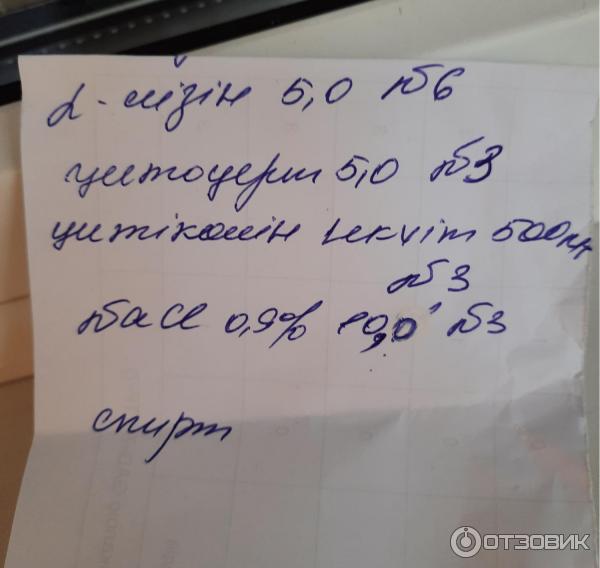 L-лізін 5,0 №6
цитоцерин 5,0 №3
цитіколін Інквіт 500мг
№3
NaCl 0,9% 10,0 №3
спирт
ОТЗОВИК